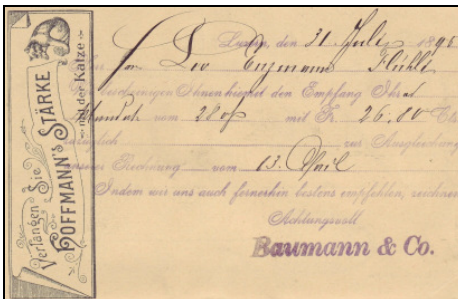 Verlangen Sie
HOFFMANN'S STÄRKE
mit der Katze
Luzern, den 31. July 1895
Herrn Leo Enzmann Flühli
Wir bescheinigen Ihnen hiemit den Empfang Ihrer
vom 28 mit Fr. 26.80 Cts.
zur Ausgleichung
unserer Rechnung vom 13. April
Indem wir uns auch fernerhin bestens empfehlen, zeichnen
Achtungsvoll
Baumann & Co.